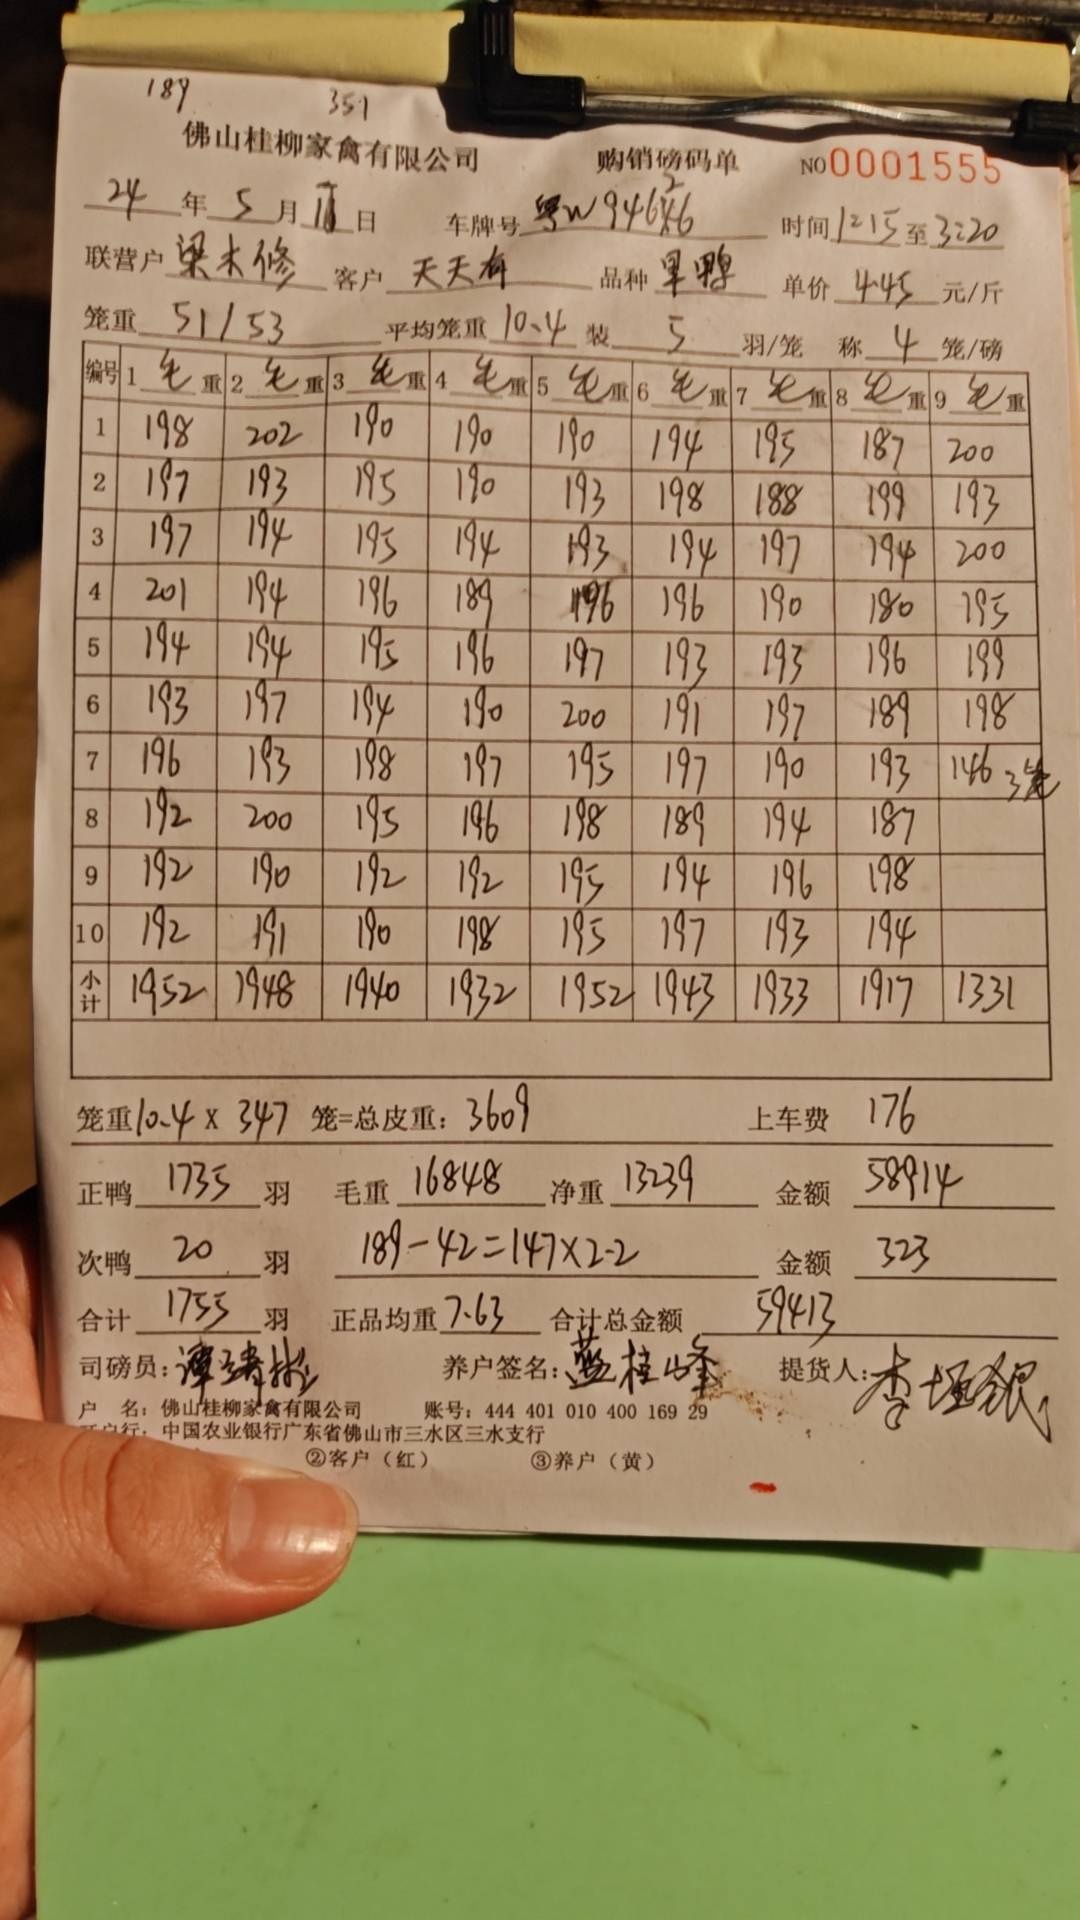 189 351
佛山桂柳家禽有限公司 购销磅码单 NO 0001555
24 年 5 月 11 日 车牌号 粤W94626 时间 1:15 至 3:20
联营户 梁木修 客户 天天有 品种 单价 4.45 元/斤
笼重 51/53 平均笼重 10.4 装 5 羽/笼 称 4 笼/磅
编号 1 毛 重 2 毛 重 3 毛 重 4 毛 重 5 毛 重 6 毛 重 7 毛 重 8 毛 重 9 毛 重
1 198 202 190 190 190 194 195 187 200
2 197 193 195 190 193 198 188 199 193
3 197 194 195 194 193 194 197 194 200
4 201 194 196 189 196 196 190 180 195
5 194 194 195 196 197 193 193 196 199
6 193 197 194 190 200 191 197 189 198
7 196 193 198 197 195 197 190 193 146 3笼
8 192 200 195 196 198 189 194 187
9 192 190 192 192 195 194 196 198
10 192 191 190 198 195 197 193 194
小计 1952 1948 1940 1932 1952 1943 1933 1917 1331
笼重 10.4 × 347 笼=总皮重: 3609 上车费 176
正鸭 1735 羽 毛重 16848 净重 13239 金额 58914
次鸭 20 羽 189-42=147×2.2 金额 323
合计 1755 羽 正品均重 7.63 合计总金额 59413
司磅员: 养户签名: 蓝桂峰 提货人:
户 名: 佛山桂柳家禽有限公司 账号: 444 401 010 400 169 29
开户行: 中国农业银行广东省佛山市三水区三水支行
②客户(红) ③养户(黄)